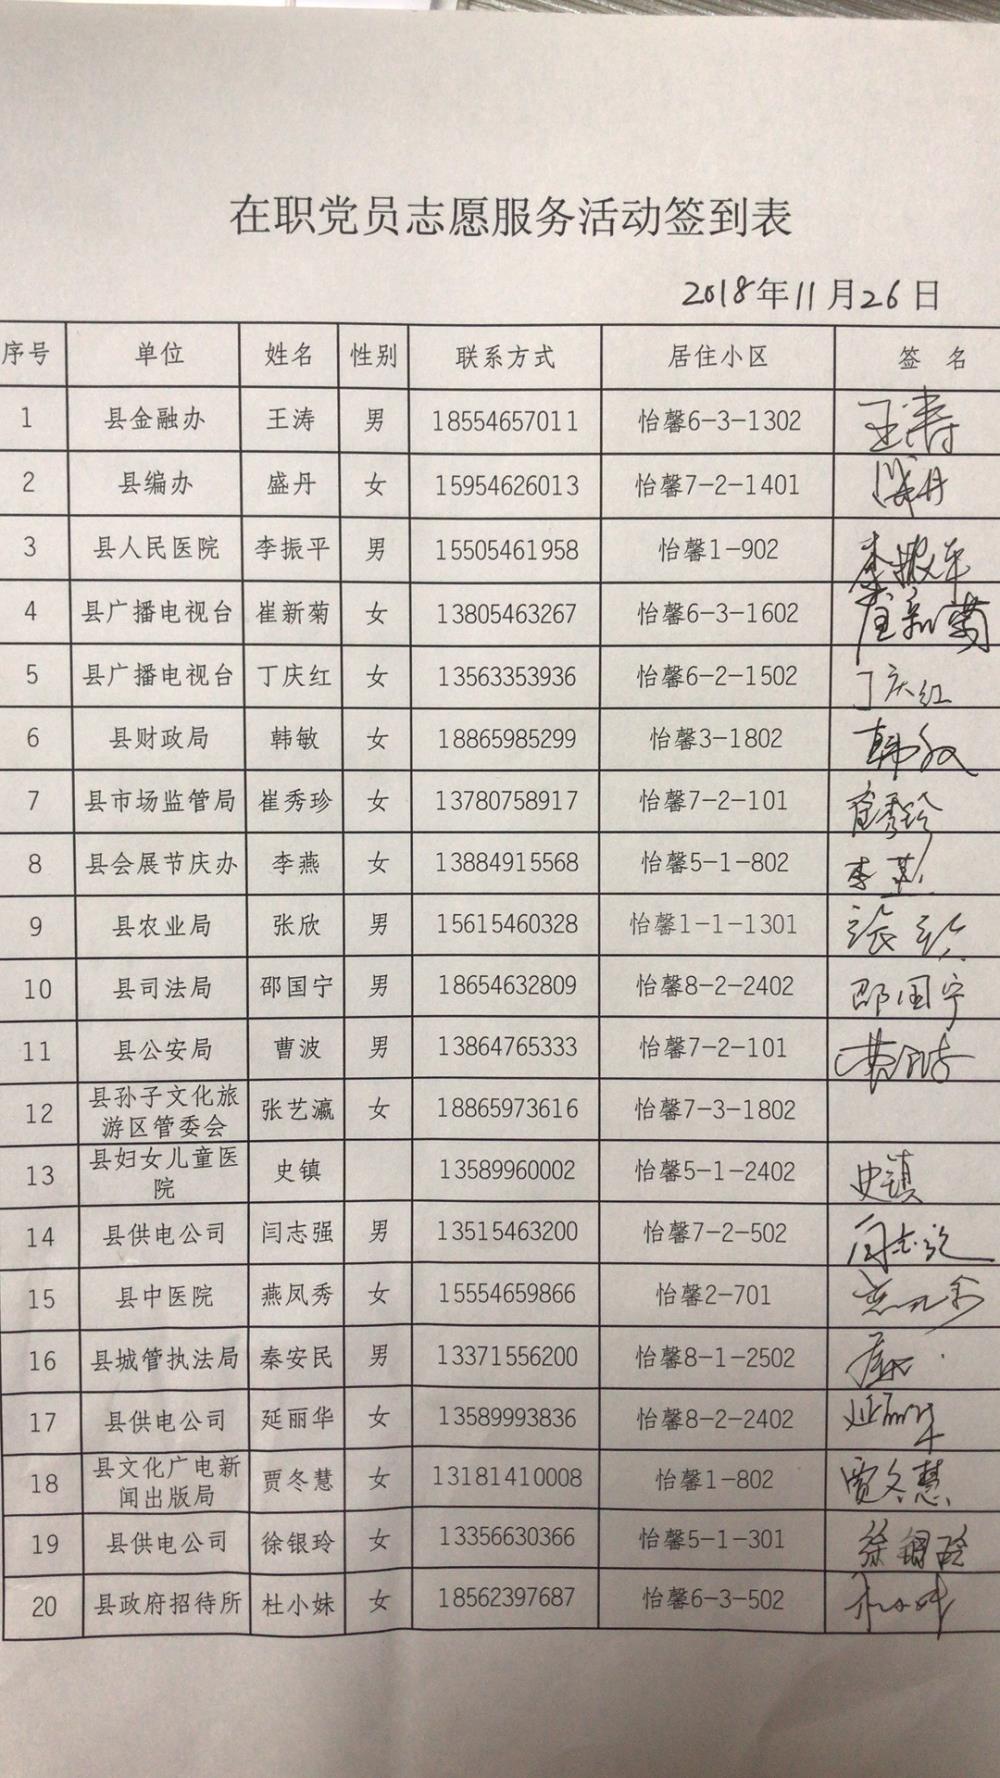 在职党员志愿服务活动签到表
2018年11月26日
序号 单位 姓名 性别 联系方式 居住小区 签 名
1 县金融办 王涛 男 18554657011 怡馨6-3-1302 王涛
2 县编办 盛丹 女 15954626013 怡馨7-2-1401 盛丹
3 县人民医院 李振平 男 15505461958 怡馨1-902 李振平
4 县广播电视台 崔新菊 女 13805463267 怡馨6-3-1602 崔新菊
5 县广播电视台 丁庆红 女 13563353936 怡馨6-2-1502 丁庆红
6 县财政局 韩敏 女 18865985299 怡馨3-1802 韩敏
7 县市场监管局 崔秀珍 女 13780758917 怡馨7-2-101 崔秀珍
8 县会展节庆办 李燕 女 13884915568 怡馨5-1-802 李燕
9 县农业局 张欣 男 15615460328 怡馨1-1-1301
10 县司法局 邵国宁 男 18654632809 怡馨8-2-2402 邵国宁
11 县公安局 曹波 男 13864765333 怡馨7-2-101
12 县孙子文化旅游区管委会 张艺瀛 女 18865973616 怡馨7-3-1802
13 县妇女儿童医院 史镇 13589960002 怡馨5-1-2402 史镇
14 县供电公司 闫志强 男 13515463200 怡馨7-2-502 闫志强
15 县中医院 燕凤秀 女 15554659866 怡馨2-701
16 县城管执法局 秦安民 男 13371556200 怡馨8-1-2502
17 县供电公司 延丽华 女 13589993836 怡馨8-2-2402 延丽华
18 县文化广电新闻出版局 贾冬慧 女 13181410008 怡馨1-802 贾冬慧
19 县供电公司 徐银玲 女 13356630366 怡馨5-1-301 徐银玲
20 县政府招待所 杜小妹 女 18562397687 怡馨6-3-502